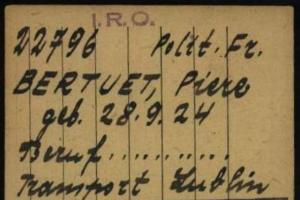 I.R.O.
22796 Polit. Fr.
BERTUET, Piere
geb. 28.9.24
Beruf ..........
Transport Lublin